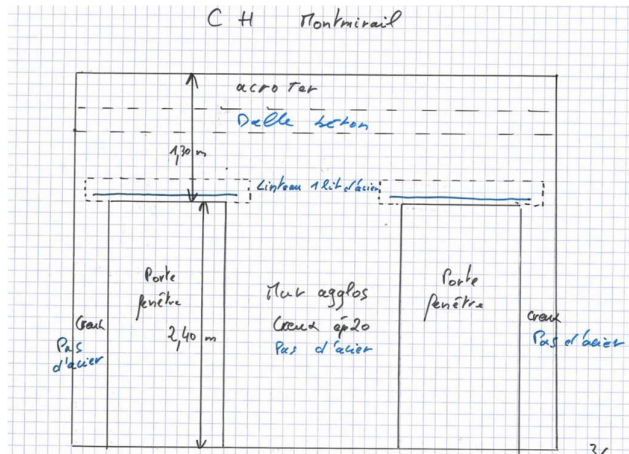 C H Montmirail
acroter
Dalle beton
1,30 m
Linteau 1 lit d'acier
Porte
fenêtre
2,40 m
Creux
Pas
d'acier
Mur agglos
Creux ép 20
Pas d'acier
Porte
fenêtre
Creux
Pas d'acier